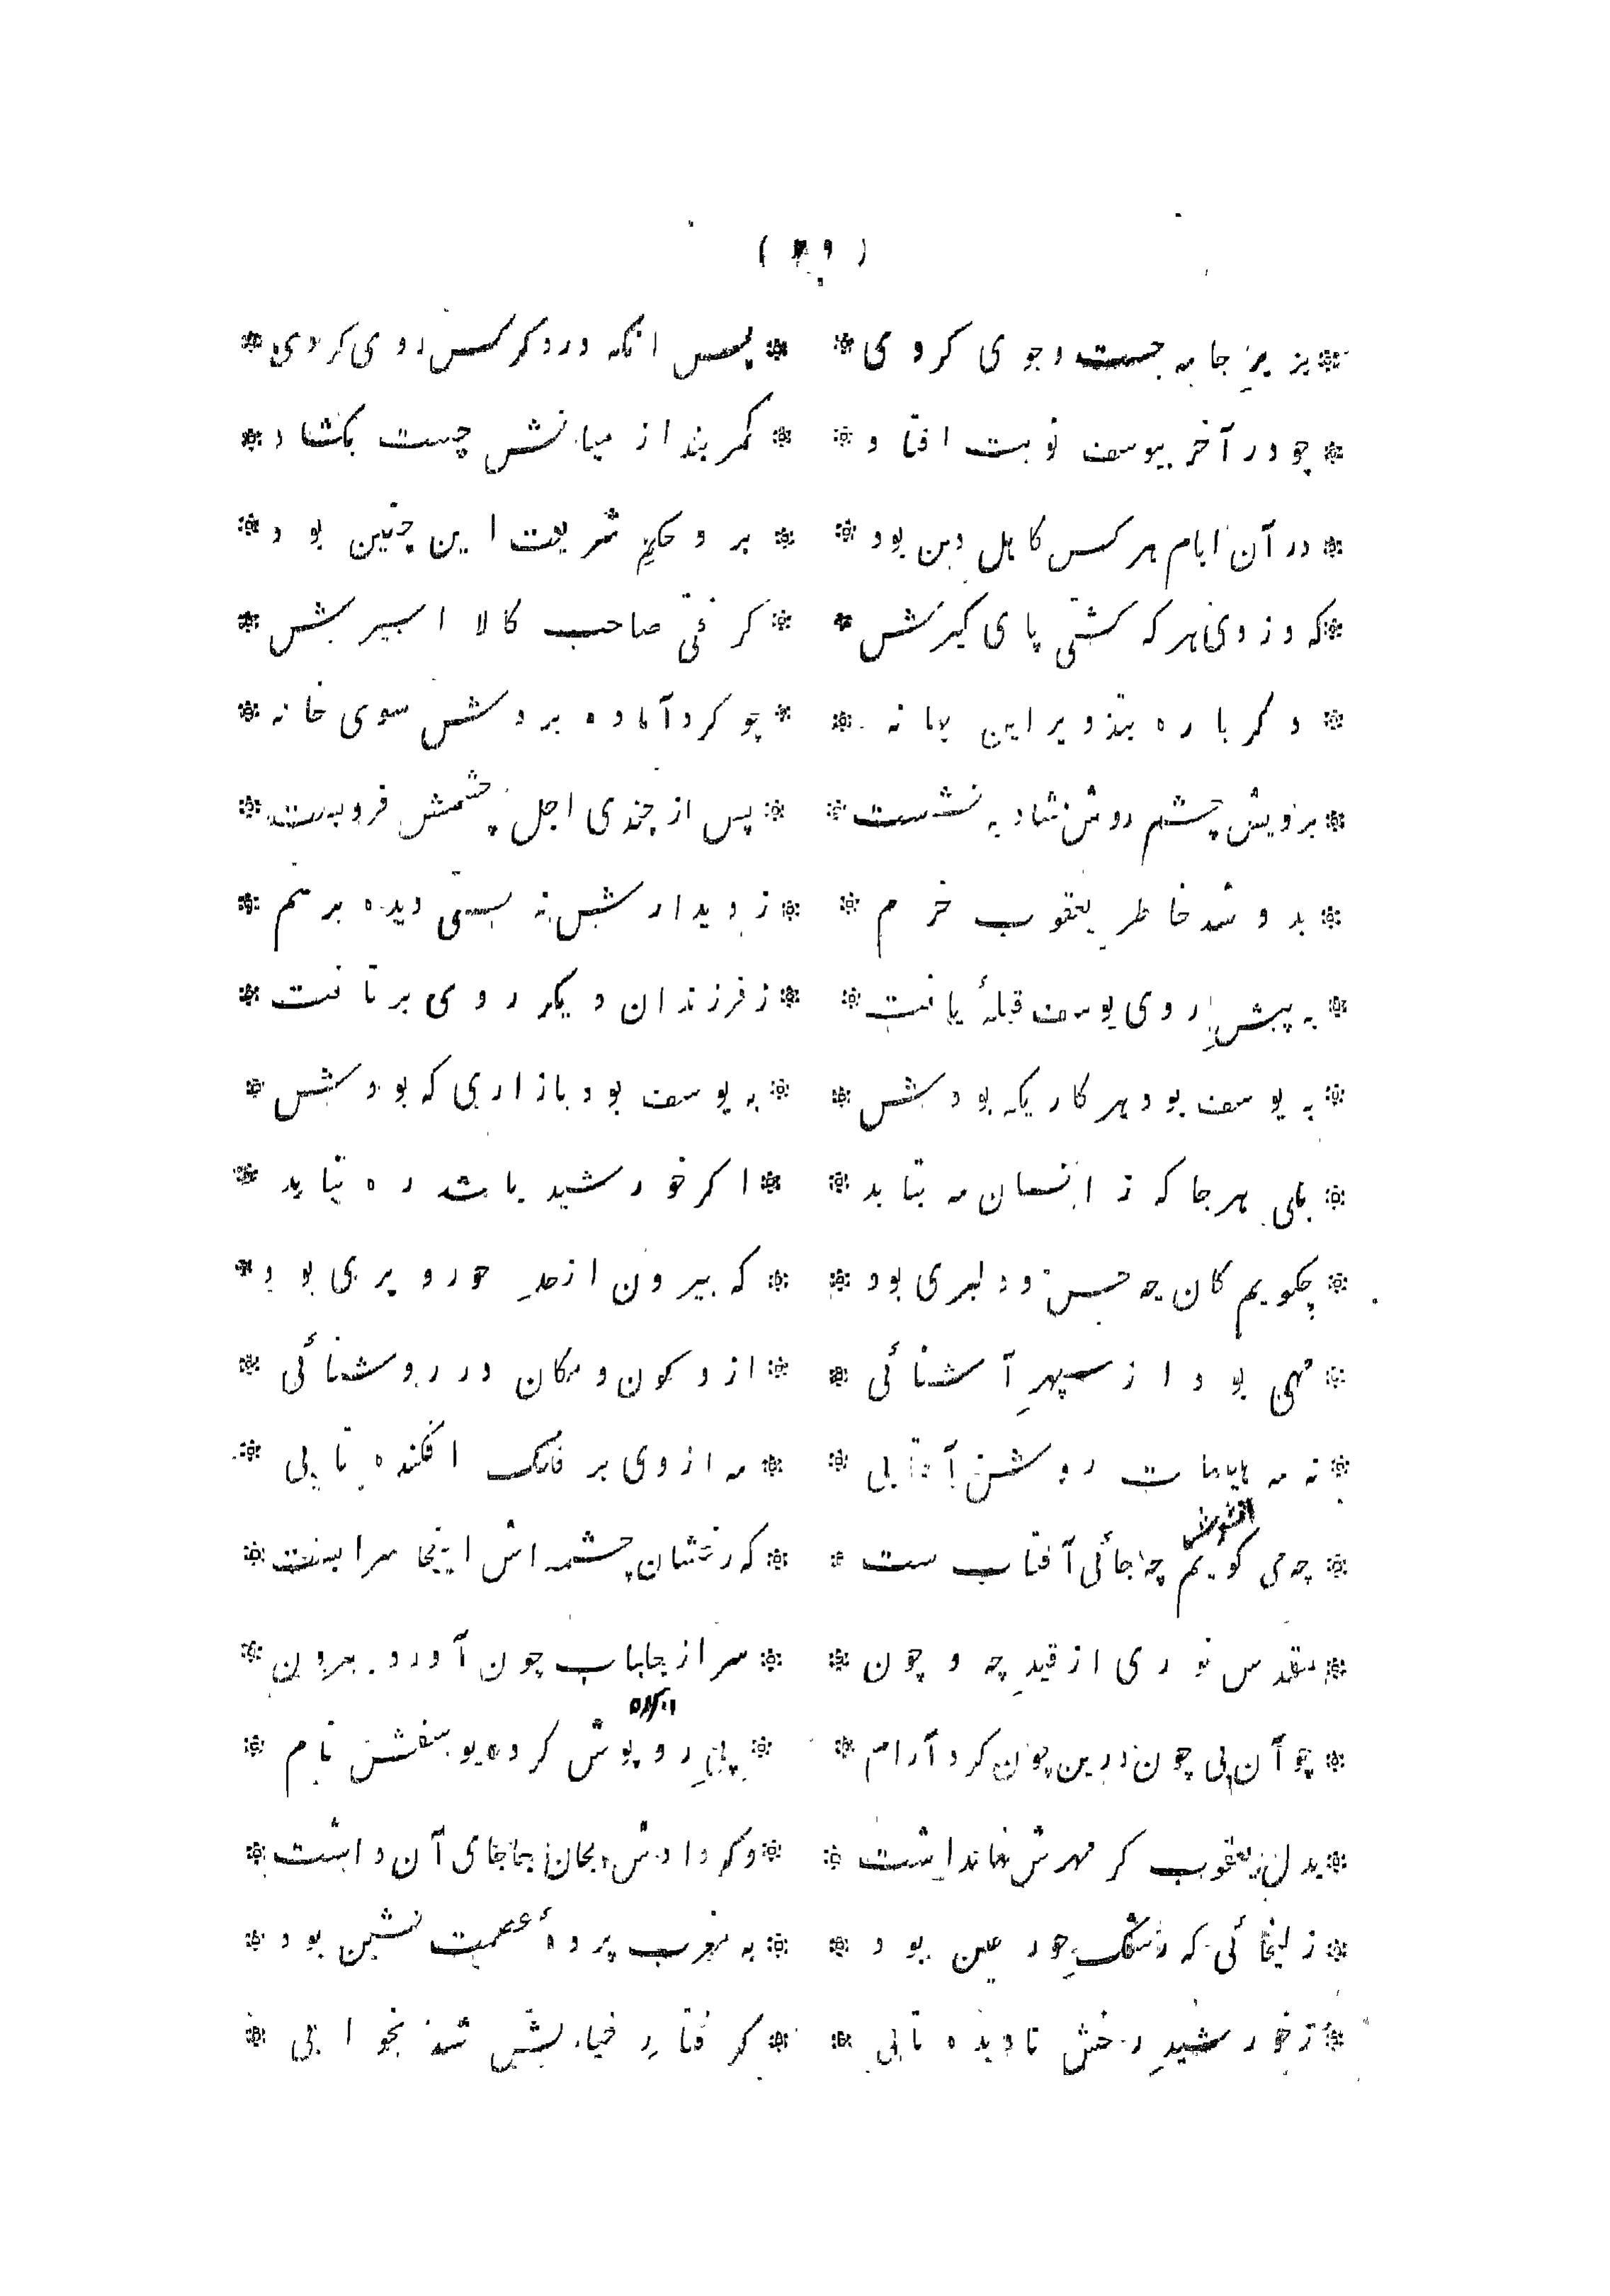 ( ۴۹ )
* بزیرِ جامه جست وجوی کردی * * پس انکه در دکرکس روی کردی *
* چو در آخر بیوسف نوبت افتاد * * کمربند از میانش چست بکشاد *
* در آن ایام هرکس کاهل دین بود * * بر و حکمِ شریعت این چنین بود *
* که دزدی هرکه کشتی پای کیرش * * کرفتی صاحب کالا اسیرش *
* دکر باره بتزویر این بهانه * * چو کرد آماده بردش سوی خانه *
* برویش چشم روشن شاد بنشست * * پس از چندی اجل چشمش فروبست *
* بدو شد خاطرِ یعقوب خرم * * ز دیدارش نه بستی دیده برهم *
* به پیشِ روی یوسف قبلهٔ یافت * * ز فرزندان دیکر روی برتافت *
* به یوسف بود هر کاریکه بودش * * به یوسف بود بازاری که بودش *
* بلی هرجا که ز انسان مه بتابد * * اکر خورشید باشد ره نیابد *
* چکویم کان چه حسن و دلبری بود * * که بیرون از حدِ حور و پری بود *
* مهی بود از سپهرِ آشنائی * * ازو کون و مکان در روشنائی *
* نه مه هیهات روشن آفتابی * * مه از وی بر فلک افکنده تابی *
* چه می کویم چه جائی آفتاب ست * * که رخشان چشمه اش اینجا سرابست *
* مقدس نوری از قیدِ چه و چون * * سر از جلباب چون آورد بیرون *
* چو آن بی چون درین چون کرد آرام * * پیِ روپوش کرده یوسفش نام *
* بدل یعقوب کر مهرش نهانداشت * * وکر دادش بجان جا جای آن داشت *
* زلیخائی که رشکِ حور عین بود * * به مغرب پردهٔ عصمت نشین بود *
* ز خورشیدِ رخش نادیده تابی * * کرفتارِ خیالش شد بخوابی *